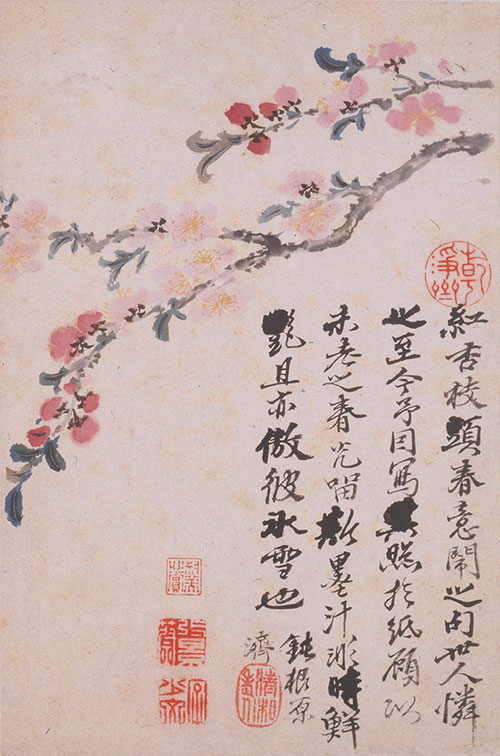 紅杏枝頭春意鬧之句世人憐
之至今予因寫其照於紙顧以
未老之春光留斯墨汁非時鮮
艷且亦傲彼冰雪也
鈍根原
濟